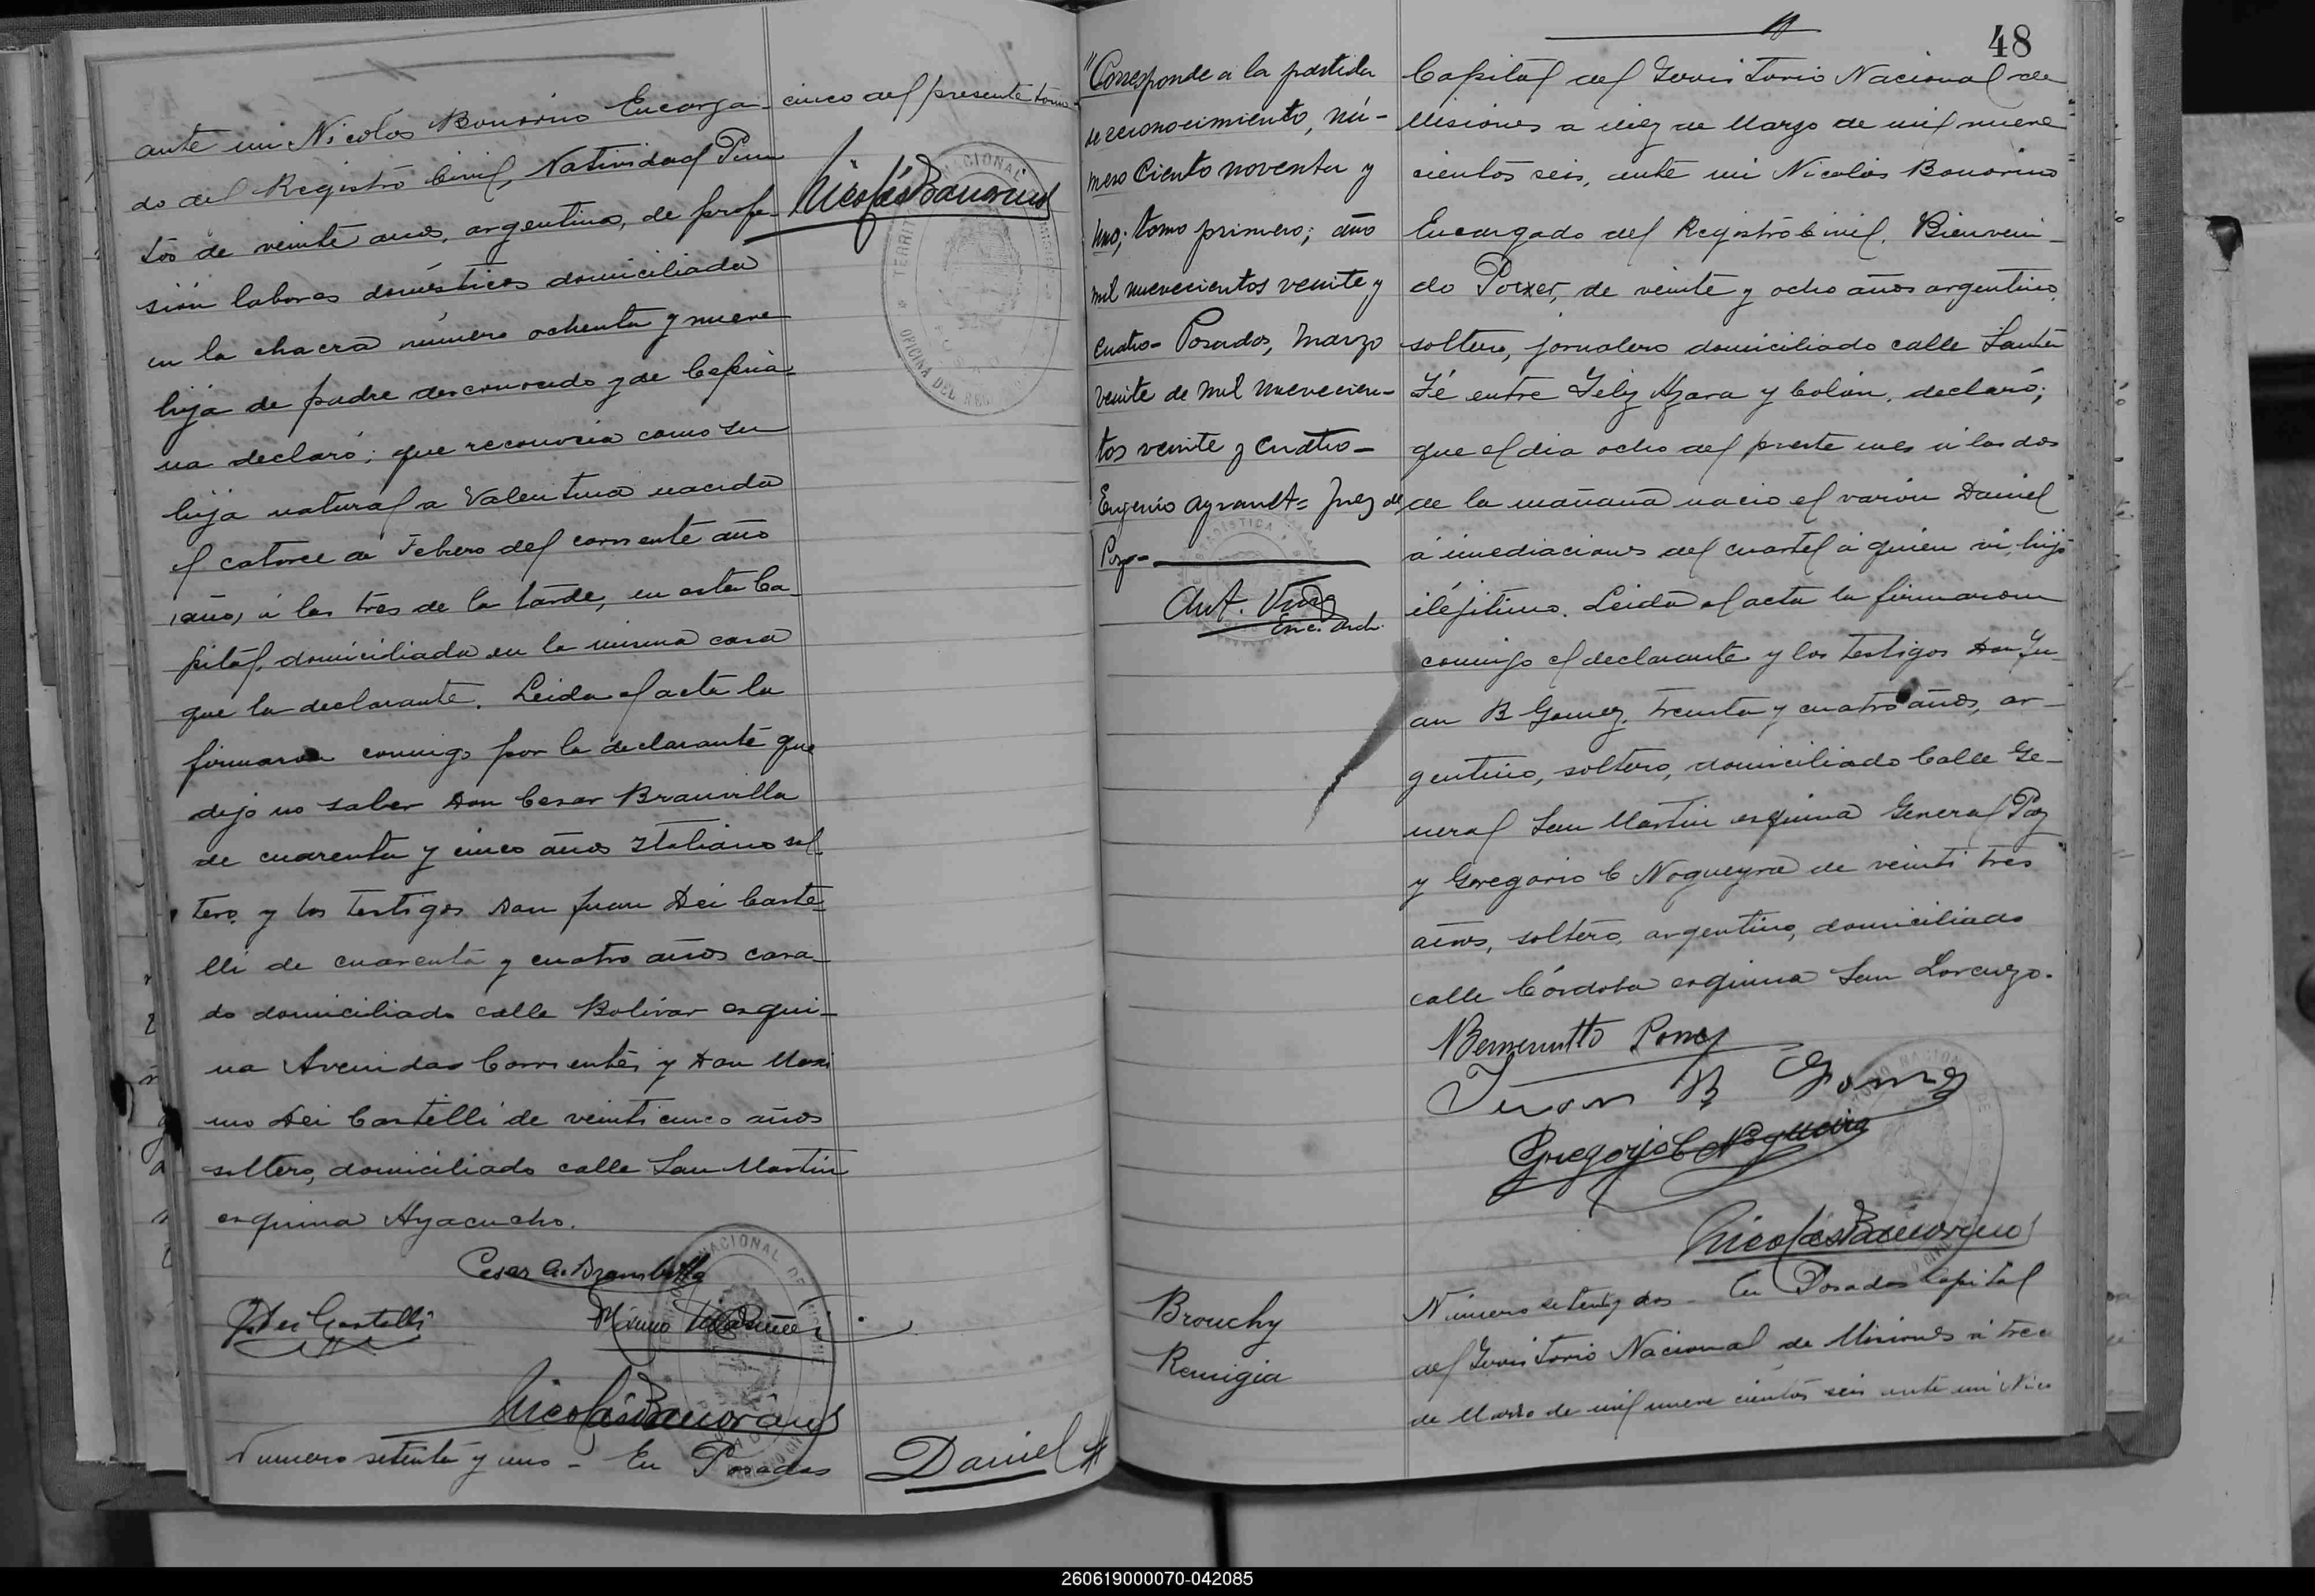 ante mi Nicolás Bonorino Encarga-
do del Registro Civil, Natividad
tos de veinte años, argentina, de profe-
sión labores domésticos domiciliada
en la chacra número ochenta y nueve
hija de padre desconocido y de Cepria-
na declaró; que reconocia como su
hija natural a Valentina nacida
el catorce de Febrero del corriente año
(año) á las tres de la tarde, en esta Ca-
pital, domiciliada en la misma casa
que la declarante. Leida el acta la
firmaron conmigo por la declarante que
dijo no saber Don Cesar Bramvilla
de cuarenta y cinco años Italiano sol-
tero y los testigos Don Juan Dei Caste-
lli de cuarenta y cuatro años casa-
do domiciliado calle Bolivar esqui-
na Avenidas Corrientes y Don Maxi
mo Dei Castelli de veinti cinco años
soltero, domiciliado calle San Martin
esquina Ayacucho.
Cesar A. Brambilla
J. Dei Castelli
Nicolás Bonorino
Numero setenta y uno - En Posadas
cinco del presente tomo
Nicolás Bonorino
Daniel
48
"Corresponde a la partida
de reconocimiento, nú-
mero Ciento noventa y
uno; tomo primero; año
mil nuevecientos veinte y
cuatro - Posadas, Marzo
veinte de mil nuevecien-
tos veinte y cuatro -
Eugenio = Juez de
Paz -
Ant.
Enc. Arch.
Capital del Territorio Nacional de
Misiones a diez de Marzo de mil nueve
cientos seis, ante mi Nicolás Bonorino
Encargado del Registro Civil, Bienveni-
do de veinte y ocho años argentino,
soltero, jornalero domiciliado calle Santa
Fé entre Feliz Azara y Colón, declaró;
que el dia ocho del preste mes á las dos
de la mañana nacio el varón Daniel
á imediaciones del cuartel á quien vi, hijo
ilejitimo. Leida el acta la firmaron
conmigo el declarante y los testigos Don Ju-
an B Gomez, treinta y cuatro años, ar-
gentino, soltero, domiciliado Calle Ge-
neral San Martin esquina General Paz
y Gregorio C Nogueyra de veinti tres
años, soltero, argentino, domiciliado
calle Córdoba esquina San Lorenzo.
Juan B Gomez
Gregorio C Nogueira
Nicolás Bonorino
Brouchy
Remigia
Número setenty dos - En Posadas Capital
del Territorio Nacional de Misiones á trece
de Marzo de mil nueve cientos seis ante mi Nico
260619000070-042085